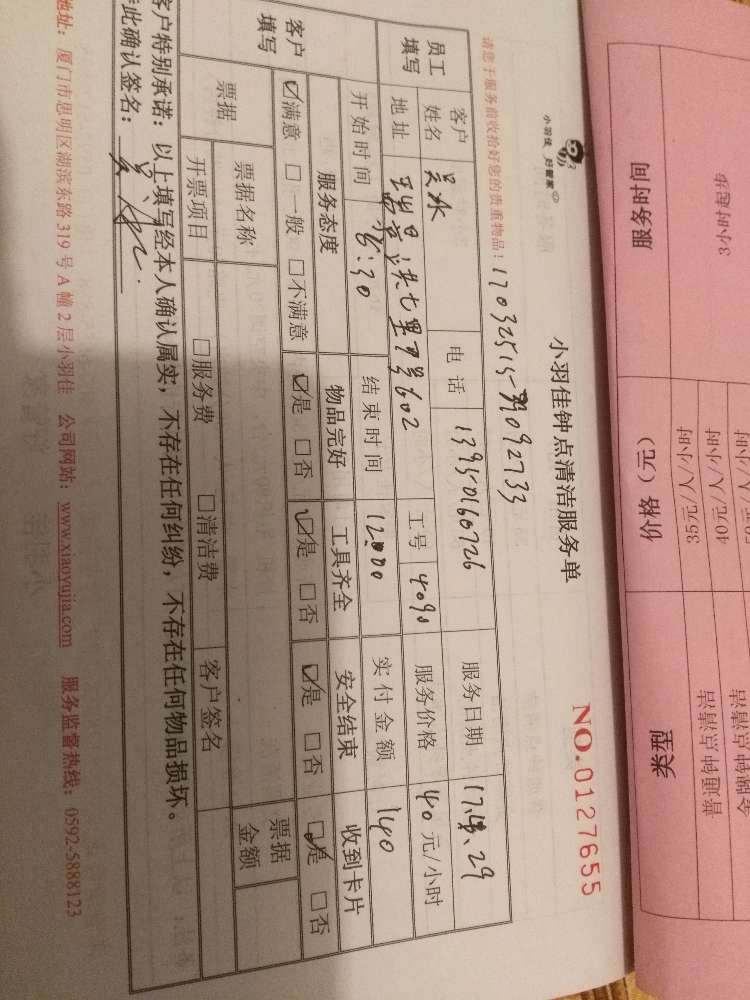 小羽佳 好管家
小羽佳钟点清洁服务单
NO.0127655
请您于服务前收拾好您的贵重物品!
17032515-39092733
员工填写
客户姓名 吴冰 电话 13950160726 服务日期
地址 七里 号602 工号 4090 服务价格 40 元/小时
开始时间 8:30 结束时间 12:00 实付金额 140
客户填写
服务态度 物品完好 工具齐全 安全结束 收到卡片
☑满意 □一般 □不满意 ☑是 □否 ☑是 □否 ☑是 □否 ☑是 □否
票据 票据名称 票据金额
开票项目 □服务费 □清洁费 客户签名
客户特别承诺：以上填写经本人确认属实，不存在任何纠纷，不存在任何物品损坏。
此确认签名：
地址：厦门市思明区湖滨东路 319 号 A 幢 2 层小羽佳 公司网站：www.xiaoyujia.com 服务监督热线：0592-5888123
服务时间 价格（元） 类型
3小时起步 35元/人/小时 普通钟点清洁
40元/人/小时 金牌钟点清洁
元/人/小时